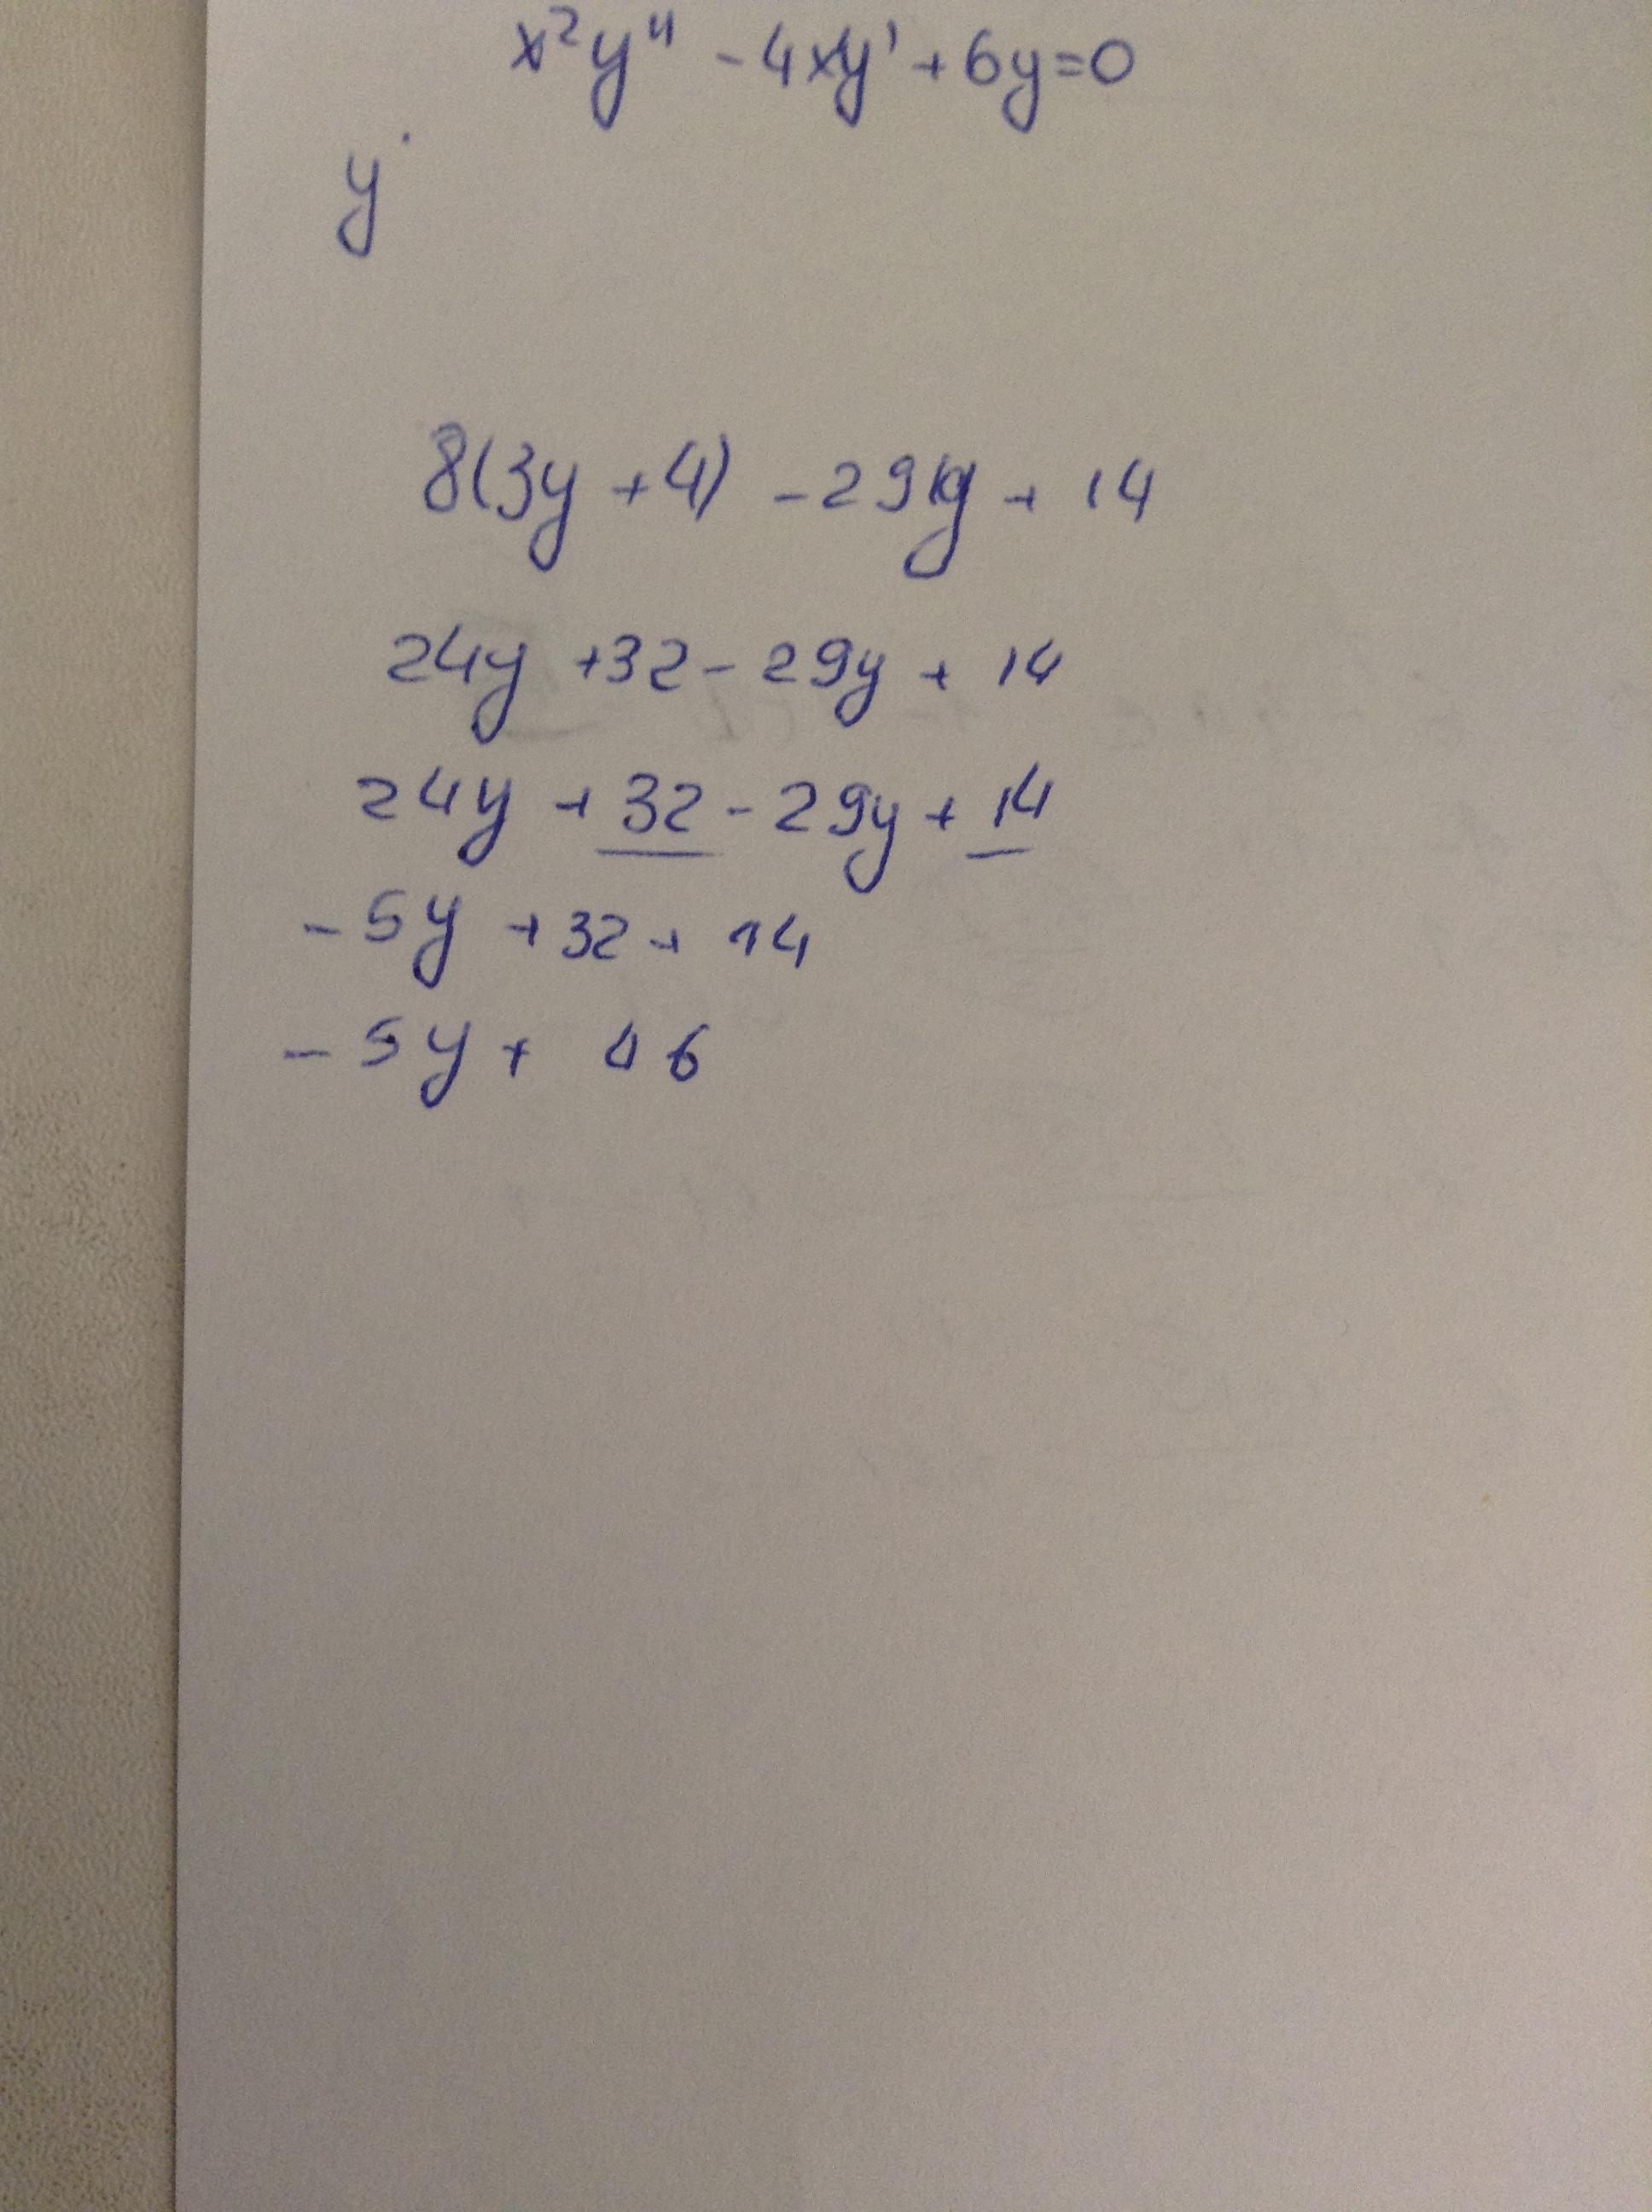 x²y'' - 4xy' + 6y = 0
y
8(3y + 4) - 29y + 14
24y + 32 - 29y + 14
24y + 32 - 29y + 14
- 5y + 32 + 14
- 5y + 46